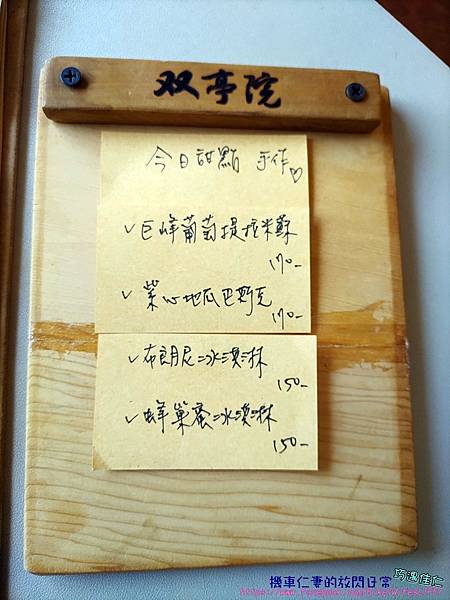 双亭院
今日甜點 手作♡
✓巨峰葡萄提拉米蘇
170-
✓紫心地瓜巴斯克
170-
✓布朗尼冰淇淋
150-
✓蜂巢蜜冰淇淋
150-
機車仁妻的放閃日常
巧遇佳仁